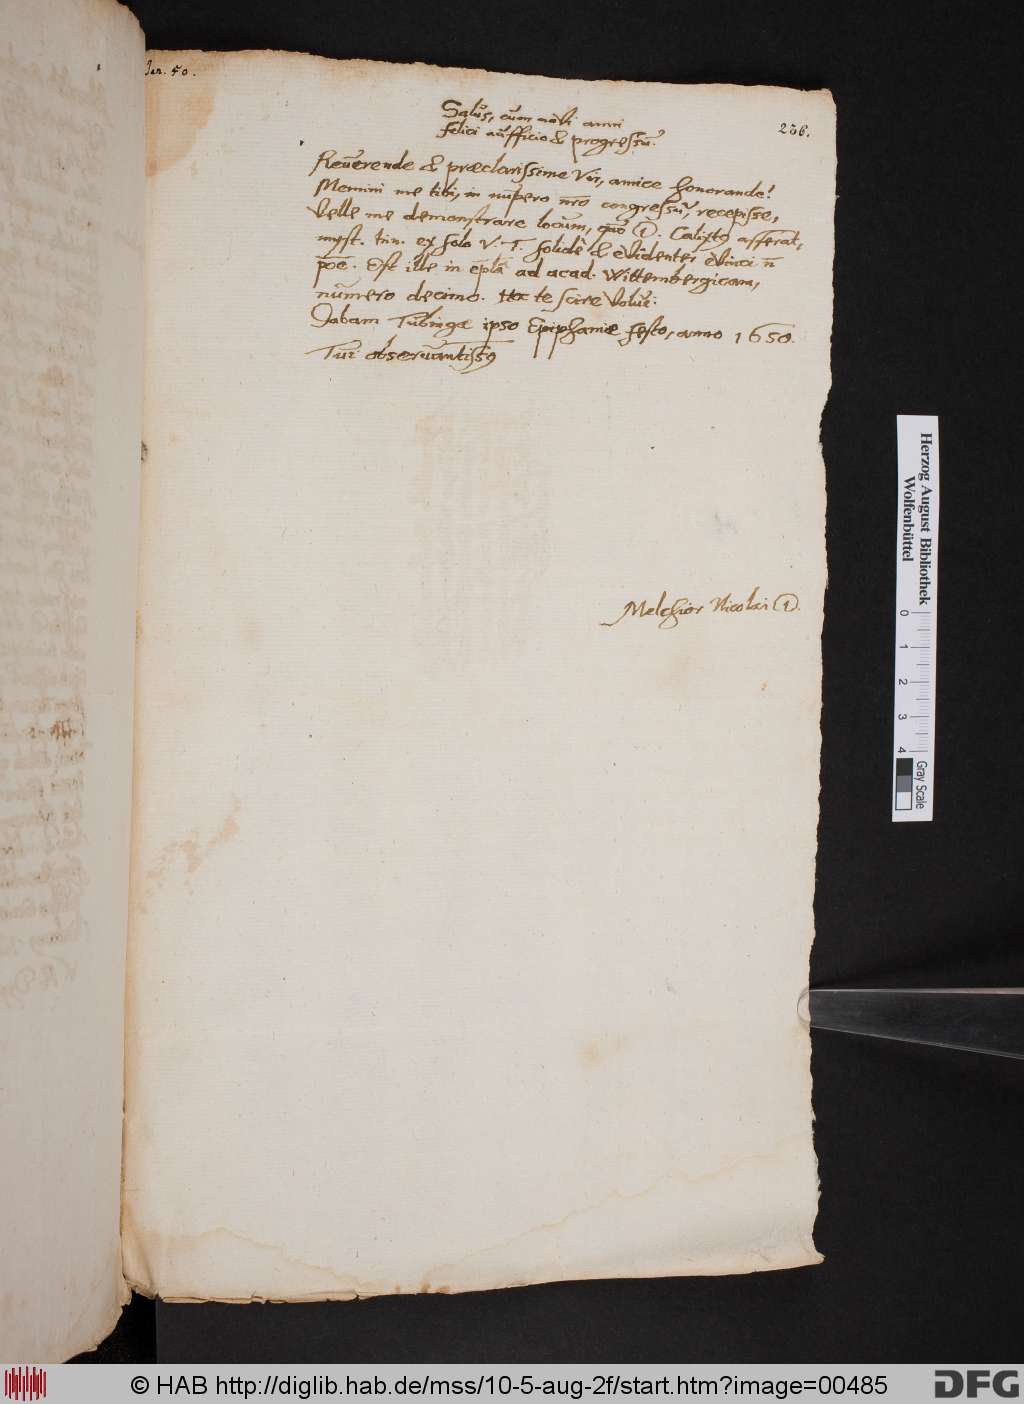 Jan. 50.
236.
Salus, cum novi anni
felici aufficio & progressu.
Reverende & præclarissime Vir, amice honorande!
Memini me tibi, in nupero nr̄o congressu, recepisse,
velle me demonstrare locum, quo D. Calixtus asserat,
myst. trin. ex solo V. T. solidè & evidenter evinci n̄
poē. Est ille in ep̄la ad acad. Wittembergicam,
numero decimo. Hoc te scire volui.
Dabam Tubingæ ipso Epiphaniæ festo, anno 1650.
Tui observantiss9
Melchior Nicolai D.
Herzog August Bibliothek
Wolfenbüttel
0 1 2 3 4
Gray Scale
© HAB http://diglib.hab.de/mss/10-5-aug-2f/start.htm?image=00485
DFG